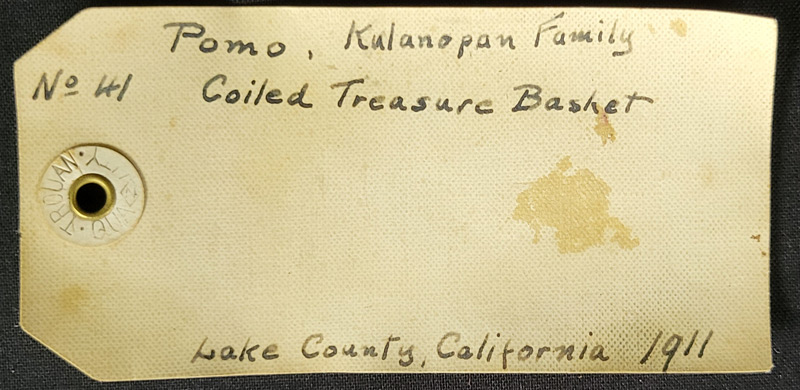 Pomo, Kulanopan Family
Nº 41 Coiled Treasure Basket
Lake County, California 1911